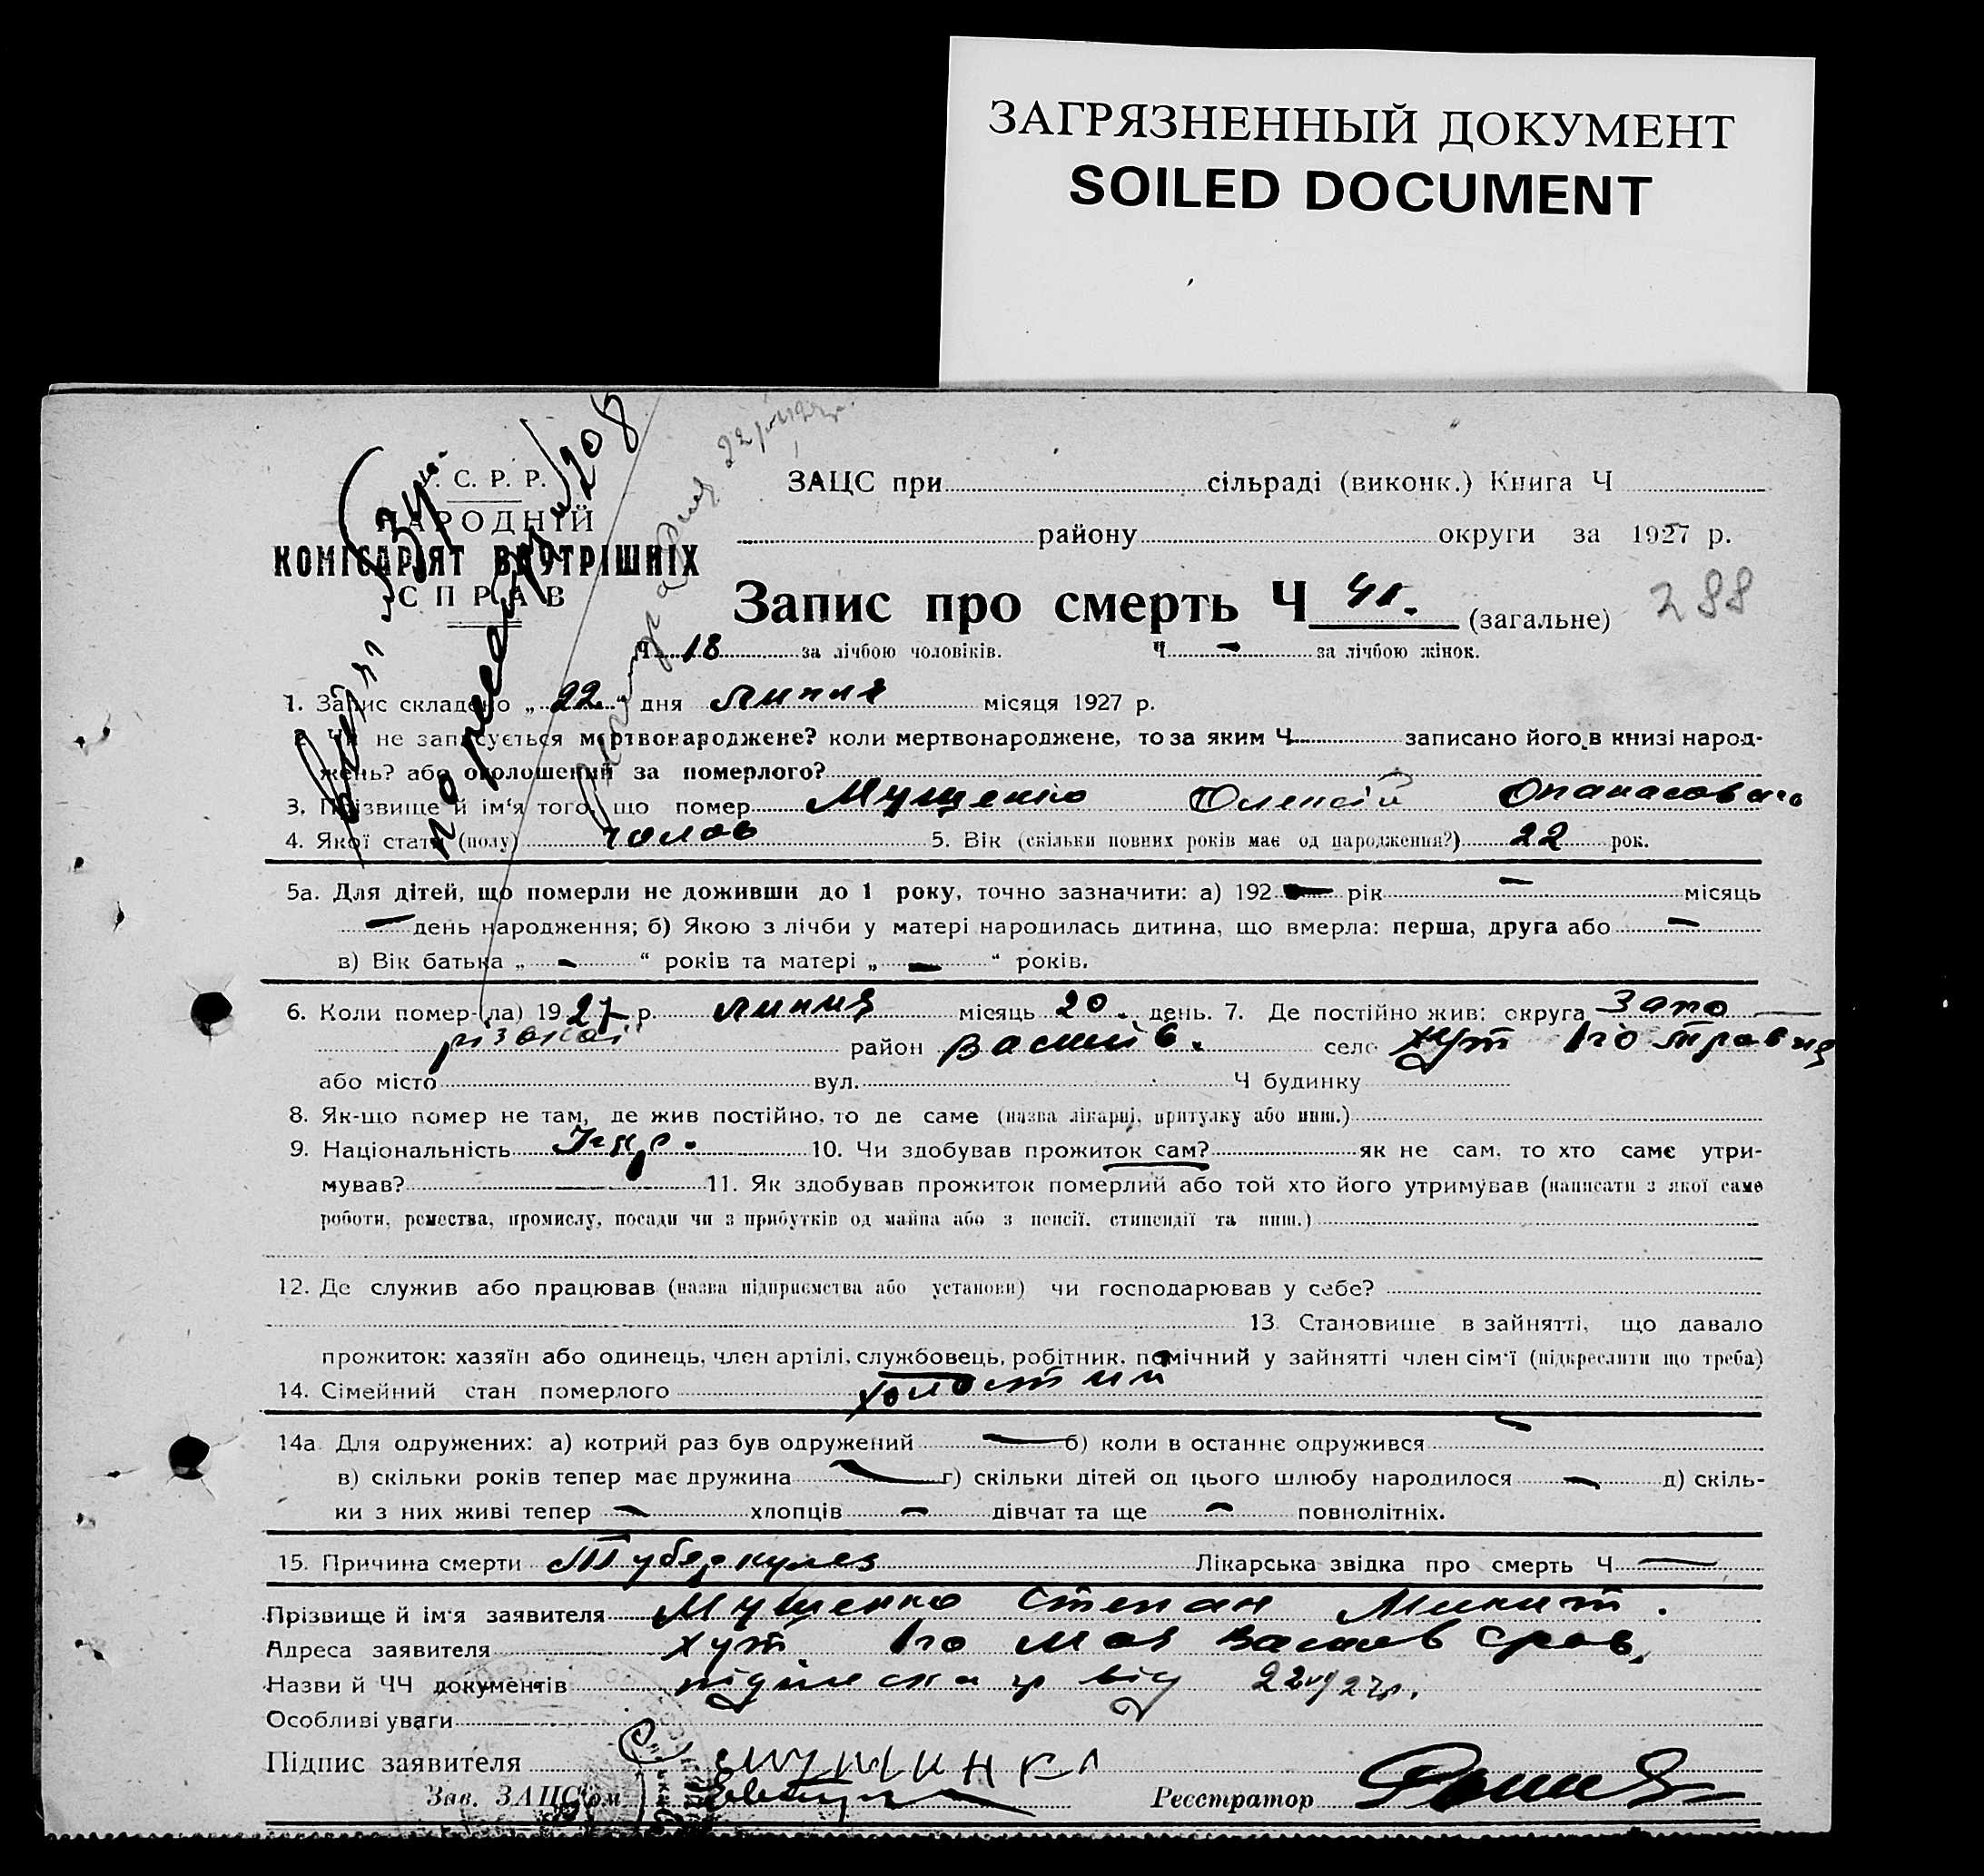 ЗАГРЯЗНЕННЫЙ ДОКУМЕНТ
SOILED DOCUMENT
У. С. Р. Р.
НАРОДНІЙ
КОМІСАРІЯТ ВНУТРІШНІХ
СПРАВ
ЗАЦС при сільраді (виконк.) Книга Ч
району округи за 1927 р.
Запис про смерть Ч 41. (загальне) 288
Ч 18 за лічбою чоловіків. Ч - за лічбою жінок.
1. Запис складено „ 22 “ дня липня місяця 1927 р.
2. Чи не записується мертвонароджене? коли мертвонароджене, то за яким Ч записано його в книзі народ-
жень? або оголошений за померлого?
3. Прізвище й ім‘я того, що помер Мущенко Олексій Опанасович
4. Якої статі (полу) чолов 5. Вік (скільки повних років має од народження?) 22 рок.
5а. Для дітей, що померли не доживши до 1 року, точно зазначити: а) 192 — рік — місяць
— день народження; б) Якою з лічби у матері народилась дитина, що вмерла: перша, друга або —
в) Вік батька „ - “ років та матері „ - “ років.
6. Коли помер-(ла) 1927 р. липня місяць 20. день. 7. Де постійно жив: округа Запо
різької район Василів. село хут
або місто вул. Ч будинку
8. Як-що помер не там, де жив постійно, то де саме (назва лікарні, притулку або инш.)
9. Національність Укр. 10. Чи здобував прожиток сам? як не сам, то хто саме утри-
мував? 11. Як здобував прожиток померлий або той хто його утримував (написати з якої саме
роботи, ремества, промислу, посади чи з прибутків од майна або з пенсії, стипендії та инш.)
12. Де служив або працював (назва підприємства або установи) чи господарював у себе?
13. Становище в зайнятті, що давало
прожиток: хазяїн або одинець, член артілі, службовець, робітник, помічний у зайнятті член сім‘ї (підкреслити що треба)
14. Сімейний стан померлого холостий
14а Для одружених: а) котрий раз був одружений — б) коли в останнє одружився -
в) скільки років тепер має дружина — г) скільки дітей од цього шлюбу народилося - д) скіль-
ки з них живі тепер - хлопців - дівчат та ще - повнолітніх.
15. Причина смерти Туберкулез Лікарська звідка про смерть Ч —
Прізвище й ім‘я заявителя Мущенко Степан Микит.
Адреса заявителя хут Васил
Назви й ЧЧ документів від
Особливі уваги
Підпис заявителя
Зав. ЗАЦС‘ом Реєстратор